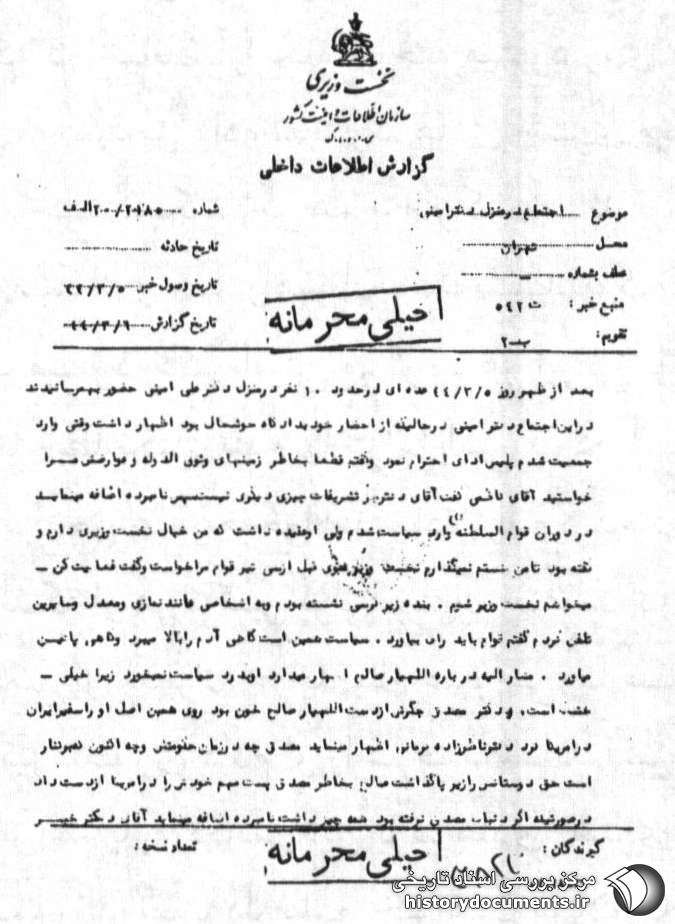 نخست وزیری
سازمان اطلاعات و امنیت کشور
س.ا.و.ا.ک
گزارش اطلاعات داخلی
موضوع اجتماع در منزل دکتر امینی
شماره ۲۰۱۸۰/۲۰۰الف
محل تهران
تاریخ حادثه
عطف بشماره
تاریخ وصول خبر ۴۴/۳/۵
منبع خبر : ۵۴۲ ت
تاریخ گزارش ۴۴/۳/۹
تقویم : ب ۲
خیلی محرمانه
بعد از ظهر روز ۴۴/۳/۵ عده ای در حدود ۱۰ نفر در منزل دکتر علی امینی حضور بهمرسانیدند
در این اجتماع دکتر امینی در حالیکه از احضار خود بدادگاه خوشحال بود اظهار داشت وقتی وارد
جمعیت شدم پلیس ادای احترام نمود وگفتم قطعا بخاطر زمینهای وثوق الدوله و عوارضش مرا
خواستید آقای گفت آقای دکتر جز تشریفات چیزی دیگری نیست سپس نامبرده اضافه مینماید
در دوران قوام السلطنه وارد سیاست شدم ولی او عقیده داشت که من خیال نخست وزیری دارم و
گفته بود تا من هستم نمیگذارم نخست وزیر شوی قبل از سی تیر قوام مرا خواست وگفت فعالیت کن ــ
میخواهم نخست وزیر شوم . بنده زیر کرسی نشسته بودم و به اشخاصی مانند نمازی ومعدل وسایرین
تلفن کردم گفتم قوام باید رای بیاورد . سیاست همین است گاهی آدم را بالا میبرد وگاهی پائین
میآورد . مشارالیه درباره اللهیار صالح اظهار میدارد او بدرد سیاست نمیخورد زیرا خیلی ــ
خشک است، و دکتر مصدق جگرش از دست اللهیار صالح خون بود روی همین اصل او را سفیر ایران
در امریکا کرد دکتر نامبرزاده اظهار مینماید مصدق چه در زمان حکومتش وچه اکنون که گرفتار
است حق دوستانش را زیر پا گذاشت صالح بخاطر مصدق پست مهم خودش را در امریکا از دست داد
در صورتیکه اگر دنبال مصدق نرفته بود همه چیز داشت نامبرده اضافه مینماید آقای دکتر
گیرندگان :
تعداد نسخه :
خیلی محرمانه
مرکز بررسی اسناد تاریخی
historydocuments.ir